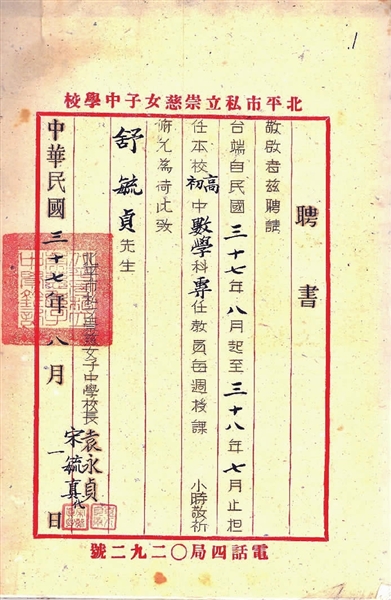 1
北平市私立崇慈女子中學校
聘書
敬啟者茲聘請
台端自民國三十七年八月起至三十八年七月止担
任本校高初中數學科專任教員每週授課 小時敬祈
俯允為荷此致
舒毓貞先生
北平市私立崇慈女子中學校長袁永貞
宋毓真代
中華民國三十七年八月一日
電話四局〇二九二號